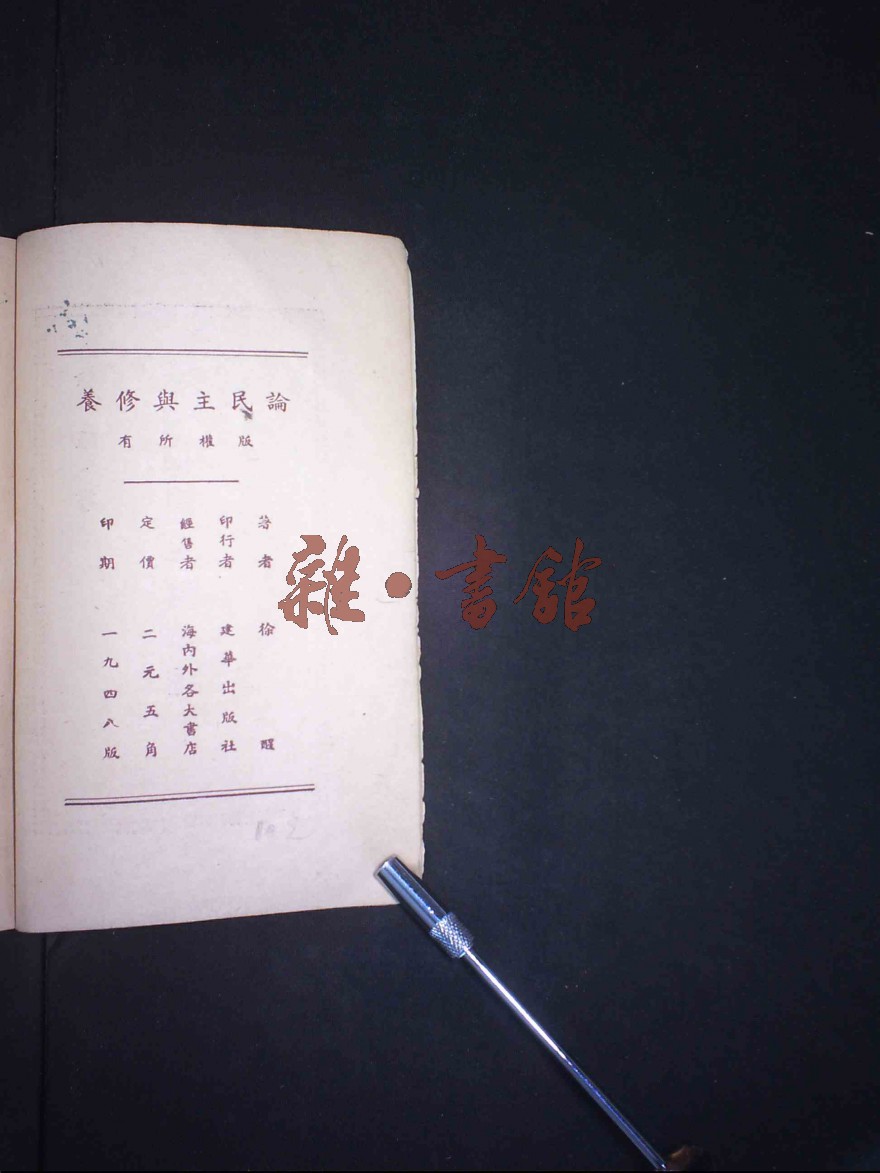 論民主與修養
版權所有
著者 徐醒
印行者 建華出版社
經售者 海內外各大書店
定價 二元五角
印期 一九四八版
雜·書館